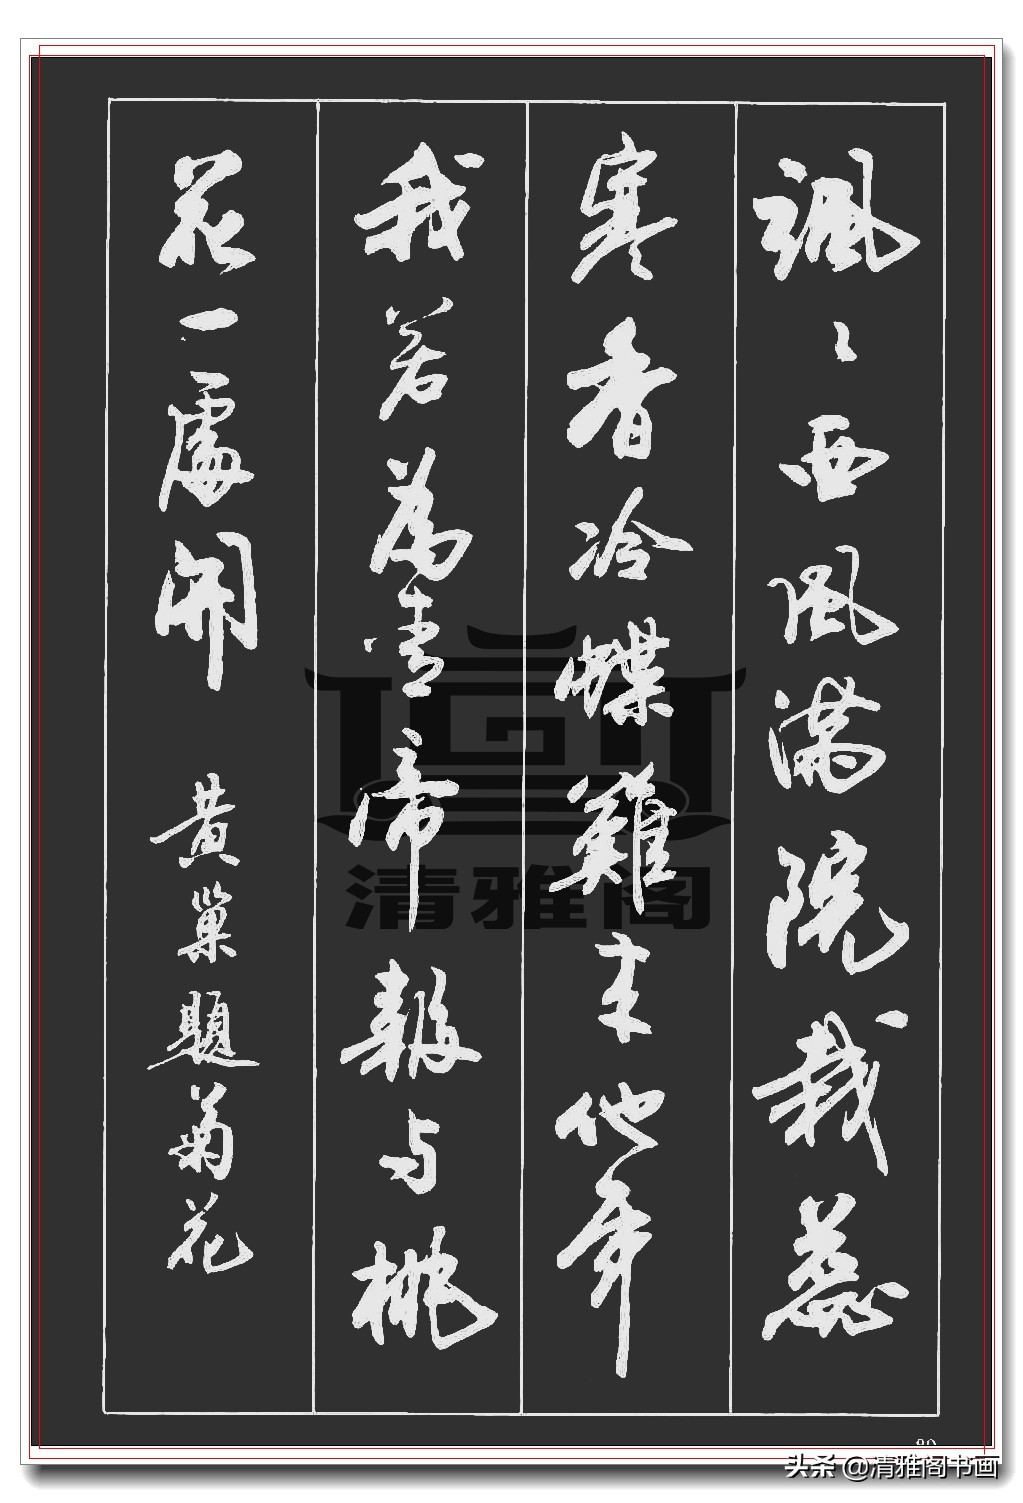 颯々西風满院栽蕊
寒香冷蝶難来他年
我若為青帝報与桃
花一處開 黄巢題菊花
清雅阁
头条 @清雅阁书画